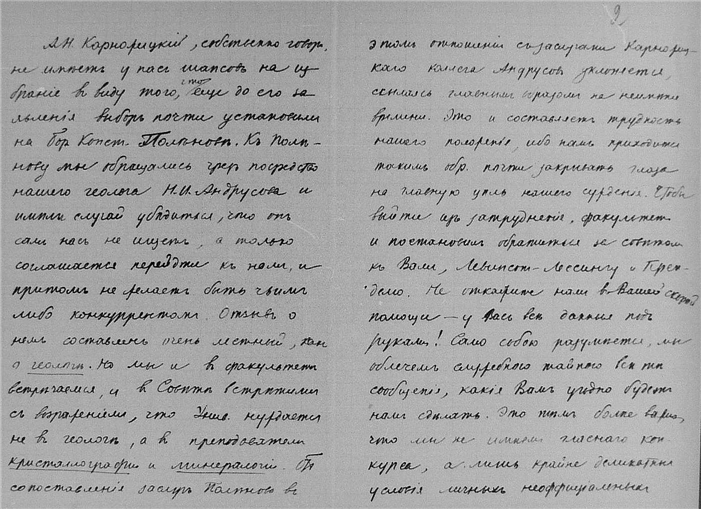 А.Н. Карножицкій, собственно говоря,
не имѣетъ у насъ шансовъ на из-
браніе въ виду того, что еще до его за-
явленія выборъ почти установили
на Бор. Конст. Полѣновѣ. Къ Полѣ-
нову мы обращались чрезъ посредство
нашего геолога Н.И. Андрусова и
имѣли случай убѣдиться, что онъ
самъ насъ не ищетъ, а только
соглашается перейдти къ намъ, и
притомъ не желаетъ быть чьимъ
либо конкуррентомъ. Отзывъ о
немъ составленъ очень лестный, какъ
о геологѣ. Но мы и въ факультетѣ
встрѣчаемся, и въ Совѣтѣ встрѣтимся
съ возраженіемъ, что Унив. нуждается
не въ геологѣ, а въ преподавателѣ
кристаллографіи и минералогіи. Отъ
сопоставленія заслугъ Полѣнова въ
9.
этомъ отношеніи съ заслугами Карножиц-
каго коллега Андрусовъ уклоняется,
ссылаясь главнымъ образомъ на неимѣніе
времени. Это и составляетъ трудность
нашего положенія, ибо намъ приходится
такимъ обр. почти закрывать глаза
на главную цѣль нашего сужденія. Чтобы
выйти изъ затрудненія, факультетъ
и постановилъ обратиться за совѣтомъ
къ Вамъ, Левинсонъ-Лессингу и Земят-
ченко. Не откажите намъ въ Вашей скорой
помощи — у Васъ всѣ данныя подъ
руками! Само собою разумѣется, мы
облечемъ служебною тайною всѣ тѣ
сообщенія, какія Вамъ угодно будетъ
намъ сдѣлать. Это тѣмъ болѣе важно,
что мы не имѣемъ гласнаго кон-
курса, а лишь крайне деликатныя
условія личныхъ неоффиціальныхъ